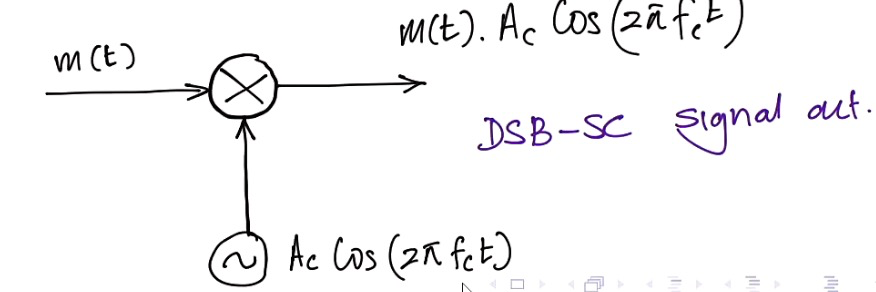 m(t). Ac Cos(2π fct)
m(t)
DSB-SC signal out.
Ac Cos(2π fct)